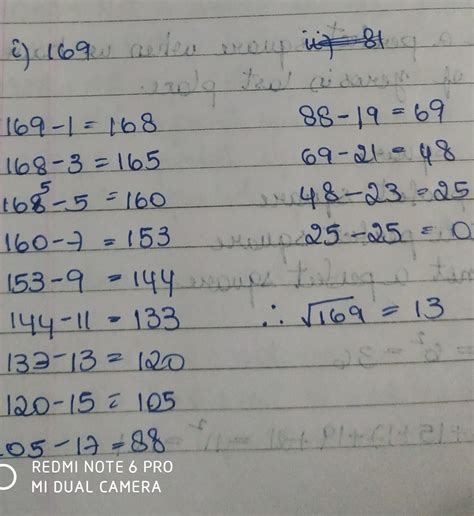 i) 169
169 - 1 = 168
168 - 3 = 165
165 - 5 = 160
160 - 7 = 153
153 - 9 = 144
144 - 11 = 133
133 - 13 = 120
120 - 15 = 105
105 - 17 = 88
ii) 81
88 - 19 = 69
69 - 21 = 48
48 - 23 = 25
25 - 25 = 0
∴ √169 = 13
REDMI NOTE 6 PRO
MI DUAL CAMERA